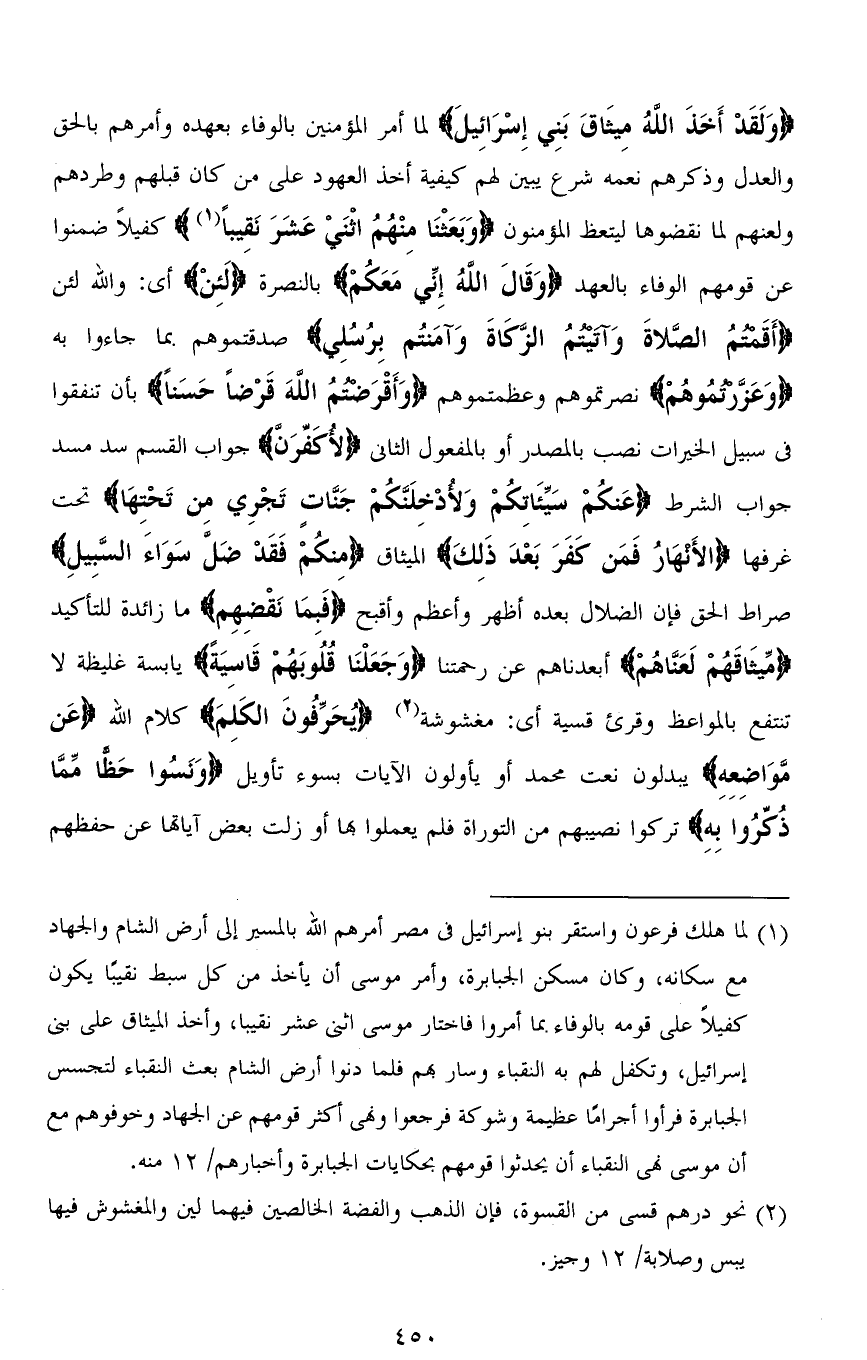 ﴿وَلَقَدْ أَخَذَ اللَّهُ مِيثَاقَ بَنِي إِسْرَائِيلَ﴾ لما أمر المؤمنين بالوفاء بعهده وأمرهم بالحق
والعدل وذكرهم نعمه شرع يبين لهم كيفية أخذ العهود على من كان قبلهم وطردهم
ولعنهم لما نقضوها ليتعظ المؤمنون ﴿وَبَعَثْنَا مِنْهُمُ اثْنَيْ عَشَرَ نَقِيباً(١)﴾ كفيلاً ضمنوا
عن قومهم الوفاء بالعهد ﴿وَقَالَ اللَّهُ إِنِّي مَعَكُمْ﴾ بالنصرة ﴿لَئِنْ﴾ أى: والله لئن
﴿أَقَمْتُمُ الصَّلاةَ وَآتَيْتُمُ الزَّكَاةَ وَآمَنتُم بِرُسُلِي﴾ صدقتموهم بما جاءوا به
﴿وَعَزَّرْتُمُوهُمْ﴾ نصرتموهم وعظمتموهم ﴿وَأَقْرَضْتُمُ اللَّهَ قَرْضاً حَسَناً﴾ بأن تنفقوا
فى سبيل الخيرات نصب بالمصدر أو بالمفعول الثانى ﴿لأُكَفِّرَنَّ﴾ جواب القسم سد مسد
جواب الشرط ﴿عَنكُمْ سَيِّئَاتِكُمْ وَلأُدْخِلَنَّكُمْ جَنَّاتٍ تَجْرِي مِن تَحْتِهَا﴾ تحت
غرفها ﴿الأَنْهَارُ فَمَن كَفَرَ بَعْدَ ذَلِكَ﴾ الميثاق ﴿مِنكُمْ فَقَدْ ضَلَّ سَوَاءَ السَّبِيلِ﴾
صراط الحق فإن الضلال بعده أظهر وأعظم وأقبح ﴿فَبِمَا نَقْضِهِم﴾ ما زائدة للتأكيد
﴿مِّيثَاقَهُمْ لَعَنَّاهُمْ﴾ أبعدناهم عن رحمتنا ﴿وَجَعَلْنَا قُلُوبَهُمْ قَاسِيَةً﴾ يابسة غليظة لا
تنتفع بالمواعظ وقرئ قسية أى: مغشوشة(٢) ﴿يُحَرِّفُونَ الكَلِمَ﴾ كلام الله ﴿عَن
مَّوَاضِعِهِ﴾ يبدلون نعت محمد أو يأولون الآيات بسوء تأويل ﴿وَنَسُوا حَظًّا مِّمَّا
ذُكِّرُوا بِهِ﴾ تركوا نصيبهم من التوراة فلم يعملوا بها أو زلت بعض آياتها عن حفظهم
(١) لما هلك فرعون واستقر بنو إسرائيل فى مصر أمرهم الله بالمسير إلى أرض الشام والجهاد
مع سكانه، وكان مسكن الجبابرة، وأمر موسى أن يأخذ من كل سبط نقيبًا يكون
كفيلاً على قومه بالوفاء بما أمروا فاختار موسى اثنى عشر نقيبا، وأخذ الميثاق على بنى
إسرائيل، وتكفل لهم به النقباء وسار بهم فلما دنوا أرض الشام بعث النقباء لتجسس
الجبابرة فرأوا أجرامًا عظيمة وشوكة فرجعوا ونهى أكثر قومهم عن الجهاد وخوفوهم مع
أن موسى نهى النقباء أن يحدثوا قومهم بحكايات الجبابرة وأخبارهم/ ١٢ منه.
(٢) نحو درهم قسى من القسوة، فإن الذهب والفضة الخالصين فيهما لين والمغشوش فيها
يبس وصلابة/ ١٢ وجيز.
٤٥٠